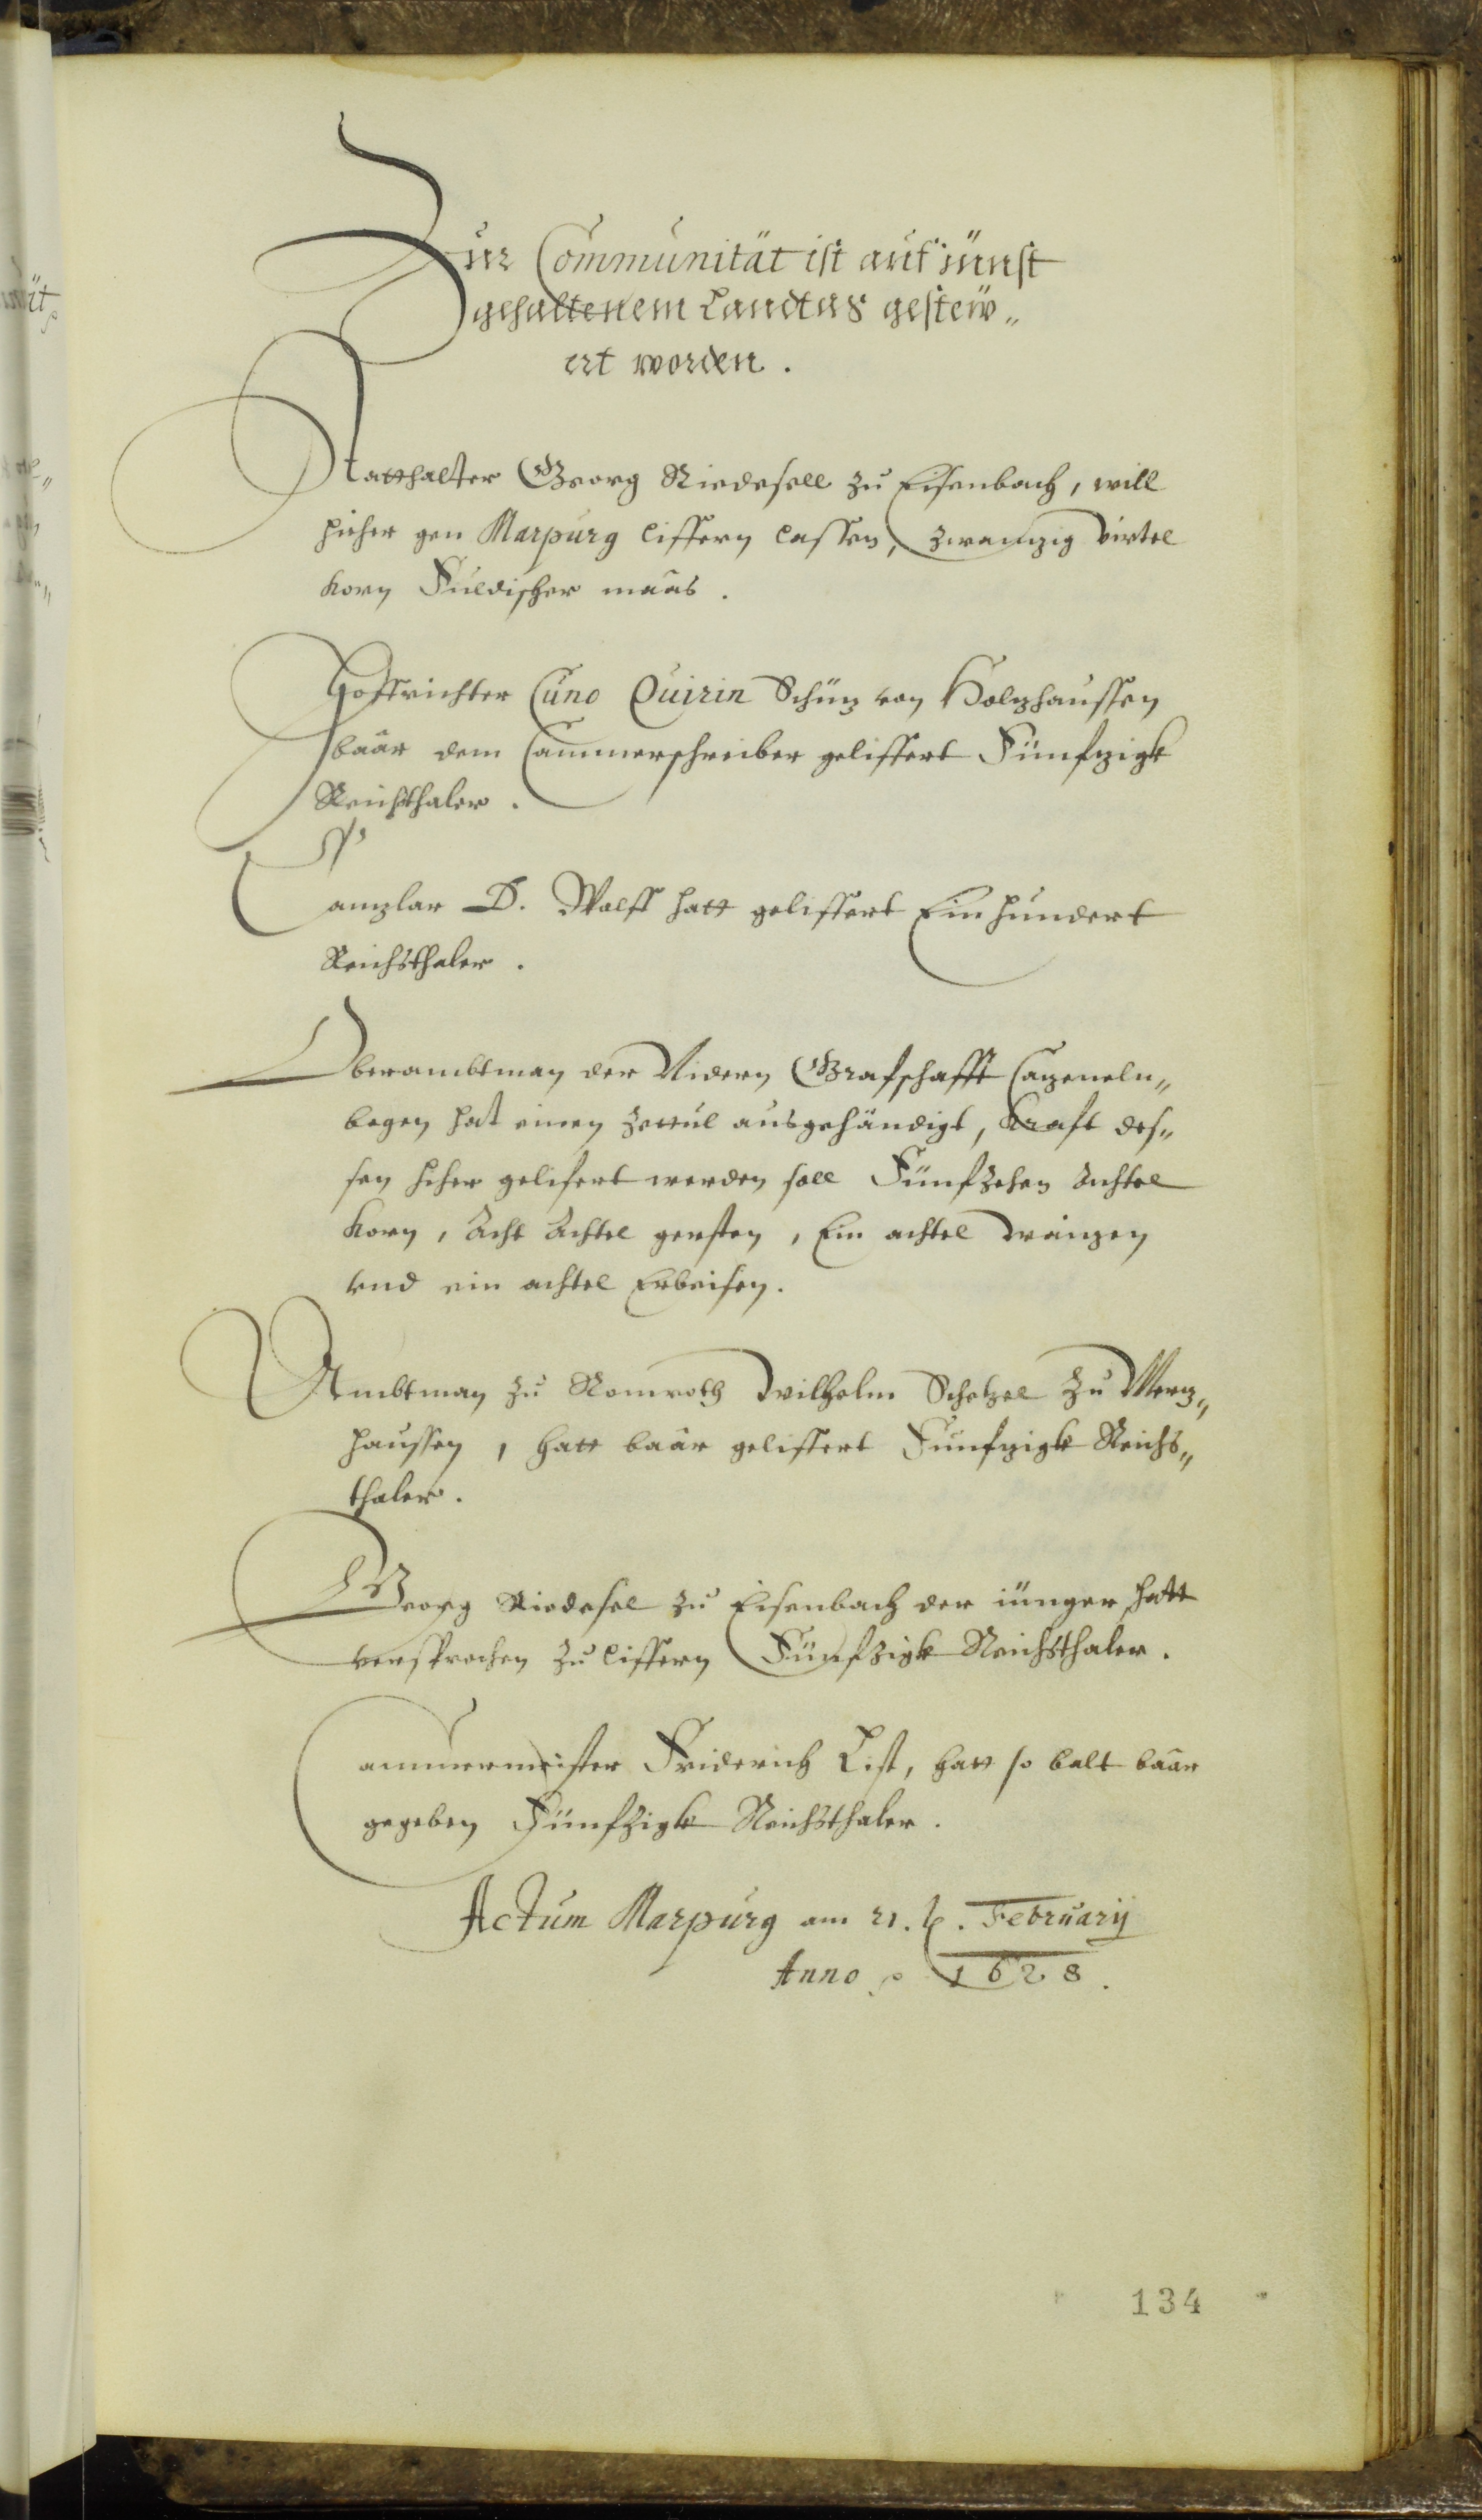 Zur Communität ist auf iünst
gehaltenem Landtag gestew„
ert worden.
Statthalter Georg Riedesell zu Eisenbach, will
hieher gen Marpurg liffern lassen, zwanzig virtel
Korn Fuldischer maas.
Hoffrichter Cuno Quirin Schüz von Holzhaussen
baar dem Cammerschreiber geliffert Fünfzigk
Reichsthaler.
Canzlar D. Wolff hatt geliffert Einhundert
Reichsthaler.
Oberambtman der Nidern Grafschafft Cazeneln„
bogen hat einen Zettul ausgehändigt, Kraft des„
sen hiher gelifert werden soll Fünfzehen Achtel
Korn, Acht Achtel gersten, Ein achtel waizen
vnd ein achtel Erbeisen.
Ambtman zu Romroth Wilhelm Schetzel zu Merz„
haussen, hatt baar geliffert Funfzigk Reichs„
thaler.
Georg Riedesel zu Eisenbach der iünger hatt
versprochen zu liffern Fünfzigk Reichsthaler.
Cammermeister Friderich List, hatt so balt baar
gegeben Fünfzigk Reichsthaler.
Actum Marpurg am 21. t. February
Anno 1628.
134